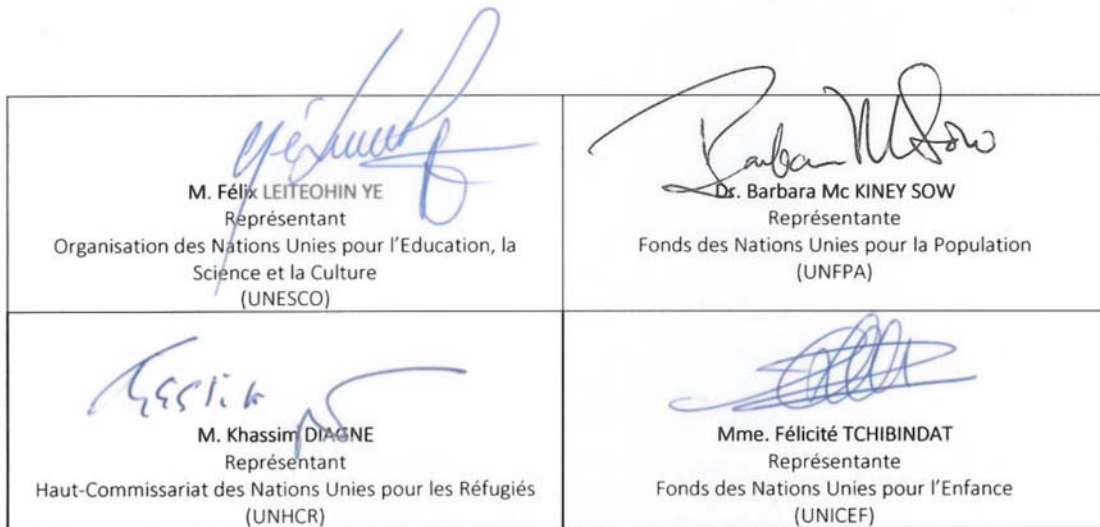 M. Félix LEITEOHIN YE
Représentant
Organisation des Nations Unies pour l'Education, la
Science et la Culture
(UNESCO)
Dr. Barbara Mc KINEY SOW
Représentante
Fonds des Nations Unies pour la Population
(UNFPA)
M. Khassim DIAGNE
Représentant
Haut-Commissariat des Nations Unies pour les Réfugiés
(UNHCR)
Mme. Félicité TCHIBINDAT
Représentante
Fonds des Nations Unies pour l'Enfance
(UNICEF)